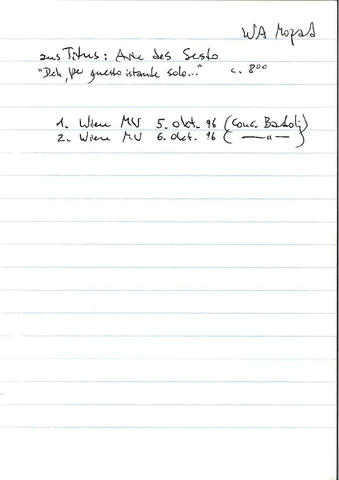 WA Mozart
aus Titus: Arie des Sesto
"Deh, per questo istante solo..." c. 8⁰⁰
1. Wien MV 5. Okt. 96 (Conc. Bartoli)
2. Wien MV 6. Okt. 96 ( —"— )